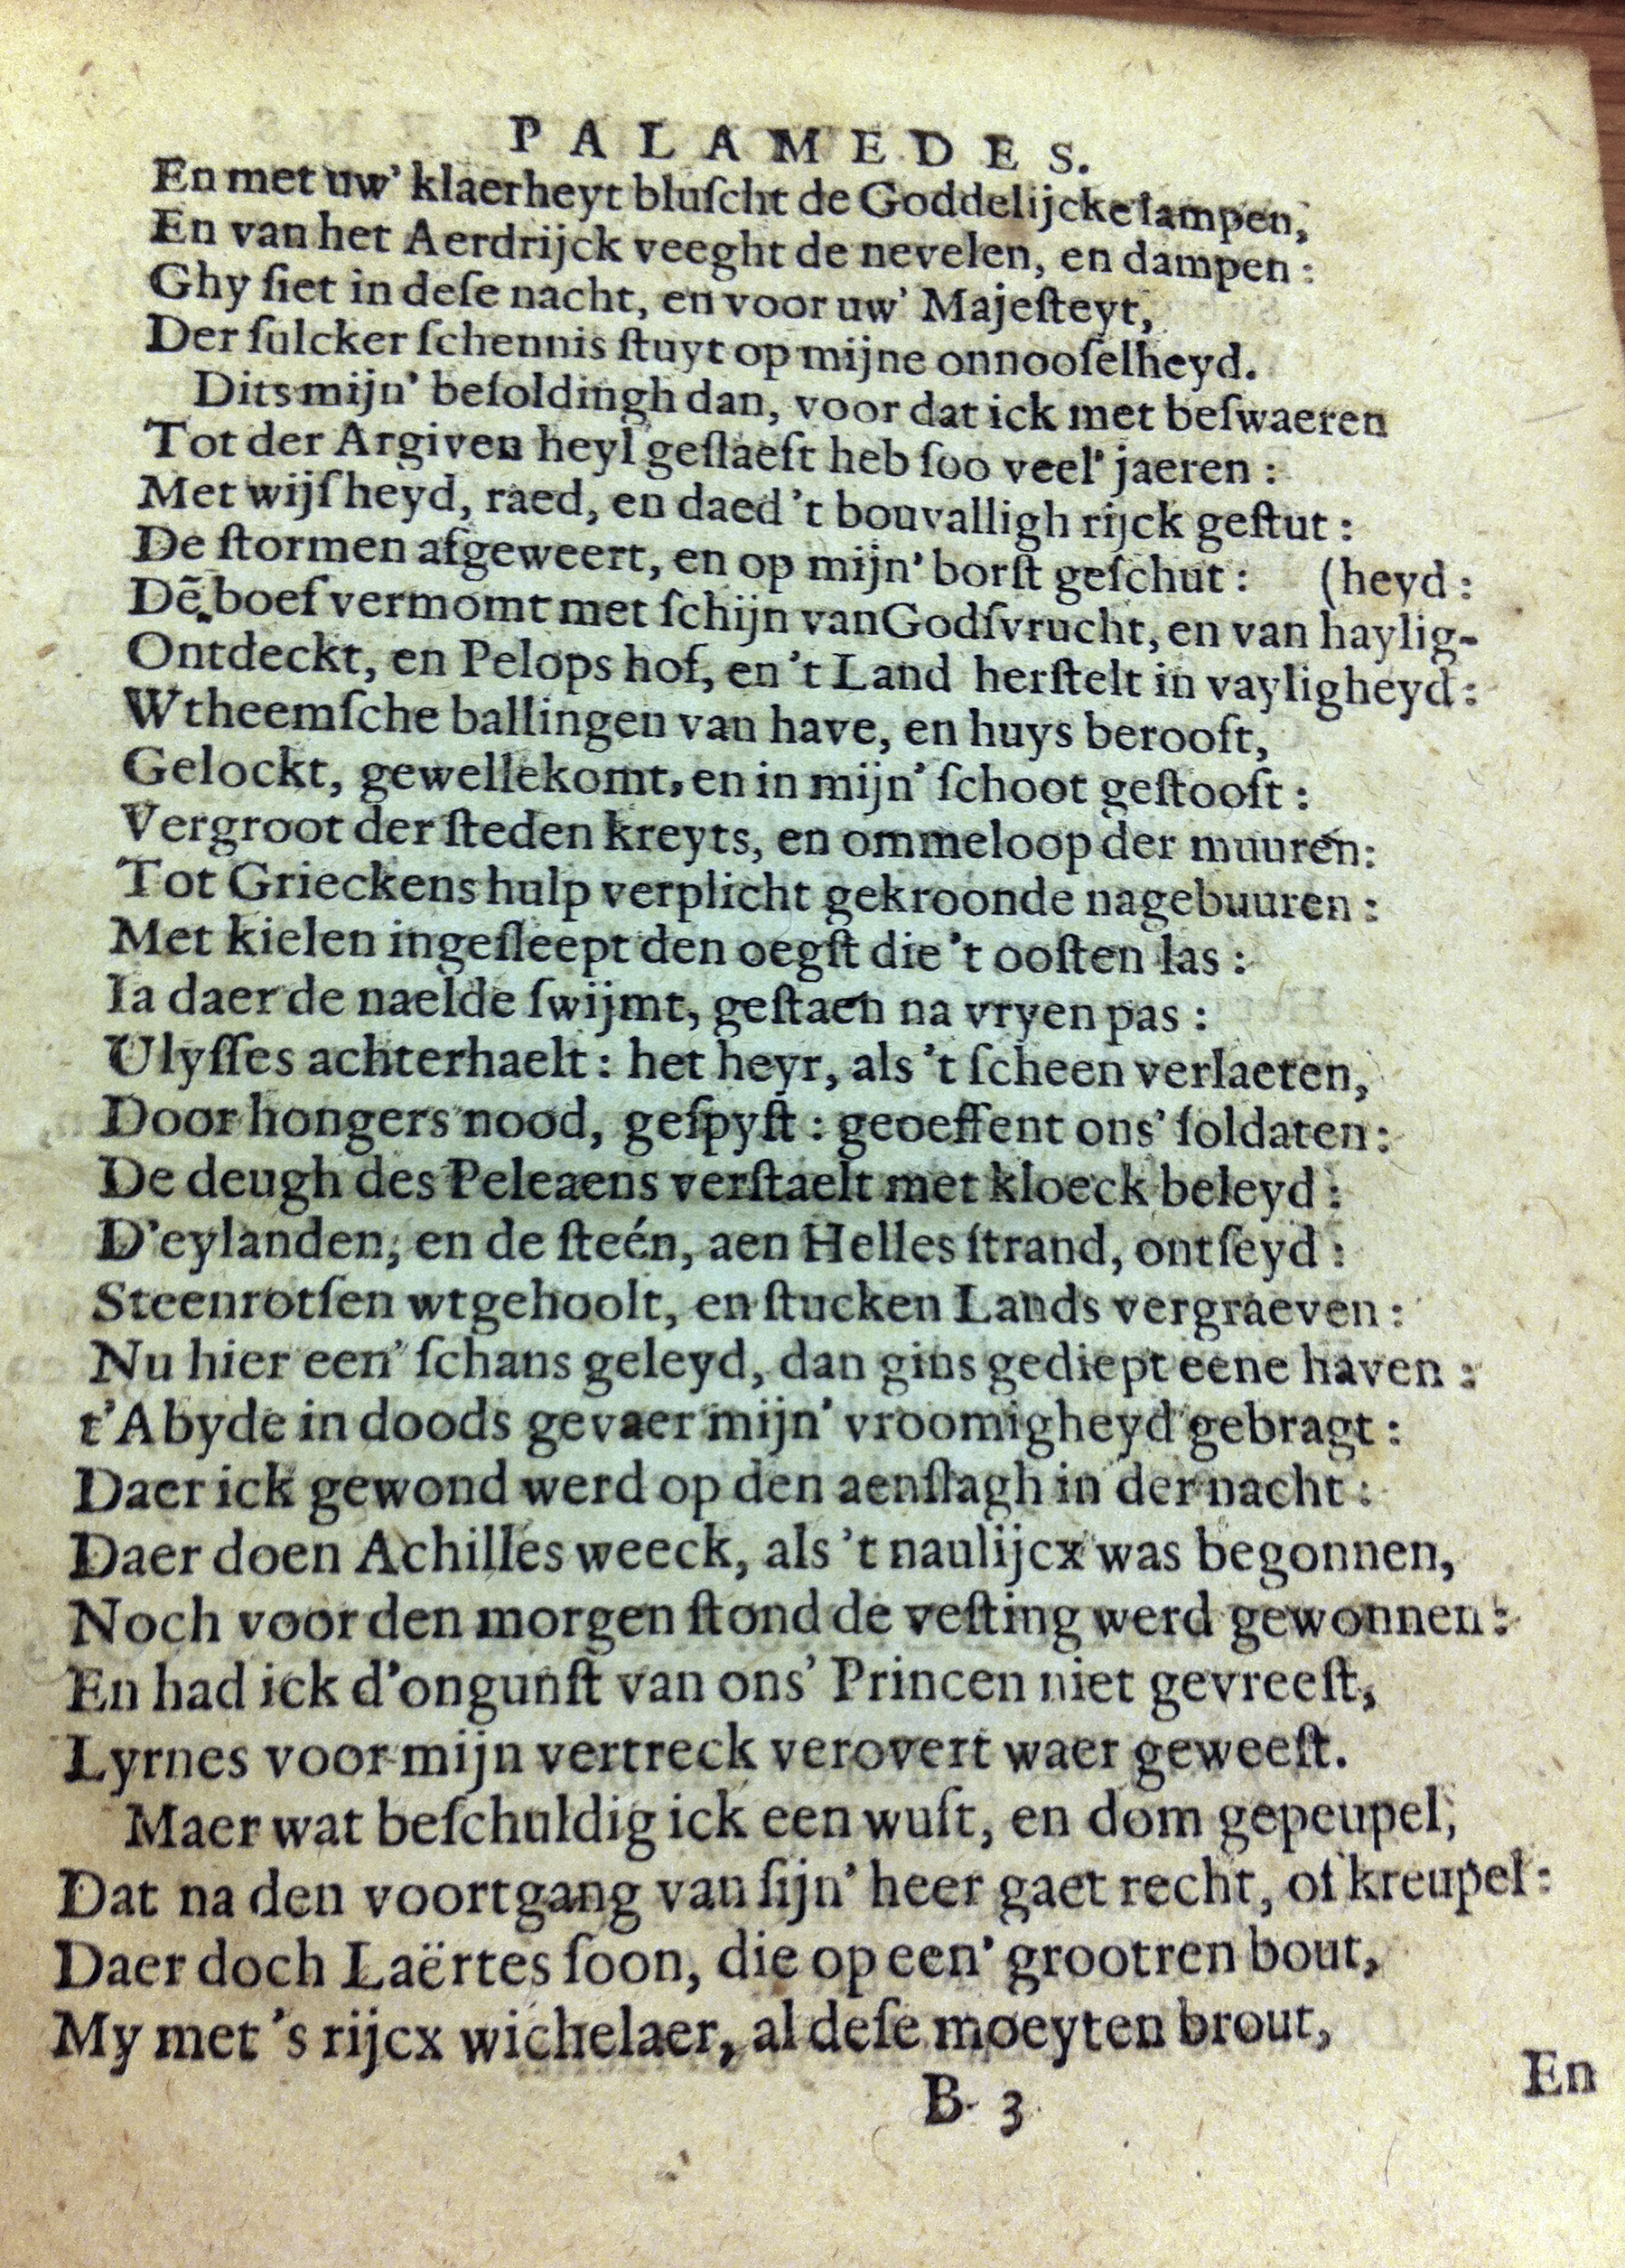 PALAMEDES.
En met uw' klaerheyt bluſcht de Goddelijcke lampen,
En van het Aerdrijck veeght de nevelen, en dampen:
Ghy ſiet in deſe nacht, en voor uw' Majeſteyt,
Der ſulcker ſchennis ſtuyt op mijne onnooſelheyd.
Dits mijn' beſoldingh dan, voor dat ick met beſwaeren
Tot der Argiven heyl geſlaeft heb ſoo veel' jaeren:
Met wijſheyd, raed, en daed 't bouvalligh rijck geſtut:
De ſtormen afgeweert, en op mijn' borſt geſchut: (heyd:
Dẽ boef vermomt met ſchijn van Godſvrucht, en van haylig-
Ontdeckt, en Pelops hof, en 't Land herſtelt in vayligheyd:
Wtheemſche ballingen van have, en huys berooft,
Gelockt, gewellekomt, en in mijn' ſchoot geſtooft:
Vergroot der ſteden kreyts, en ommeloop der muuren:
Tot Grieckens hulp verplicht gekroonde nagebuuren:
Met kielen ingeſleept den oegſt die 't ooſten las:
Ia daer de naelde ſwijmt, geſtaen na vryen pas:
Ulyſſes achterhaelt: het heyr, als 't ſcheen verlaeten,
Door hongers nood, geſpyſt: geoeffent ons' ſoldaten:
De deugh des Peleaens verſtaelt met kloeck beleyd:
D'eylanden, en de ſteén, aen Helles ſtrand, ontſeyd:
Steenrotſen wtgehoolt, en ſtucken Lands vergraeven:
Nu hier een' ſchans geleyd, dan gins gediept eene haven:
t'Abyde in doods gevaer mijn' vroomigheyd gebragt:
Daer ick gewond werd op den aenſlagh in der nacht:
Daer doen Achilles weeck, als 't naulijcx was begonnen,
Noch voor den morgen ſtond de veſting werd gewonnen:
En had ick d'ongunſt van ons' Princen niet gevreeſt,
Lyrnes voor mijn vertreck verovert waer geweeſt.
Maer wat beſchuldig ick een wuft, en dom gepeupel,
Dat na den voortgang van ſijn' heer gaet recht, of kreupel:
Daer doch Laërtes ſoon, die op een' grootren bout,
My met 's rijcx wichelaer, al deſe moeyten brout,
B 3
En